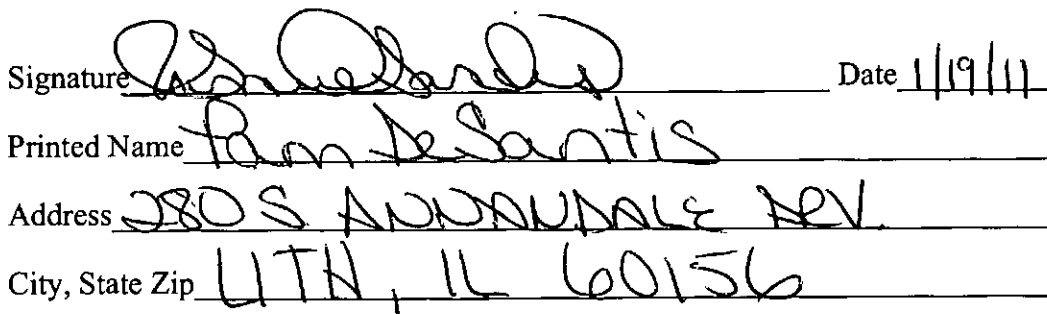 Signature Date 1/19/11
Printed Name Pam DeSantis
Address 280 S ANNANDALE DRV.
City, State Zip LITH, IL 60156